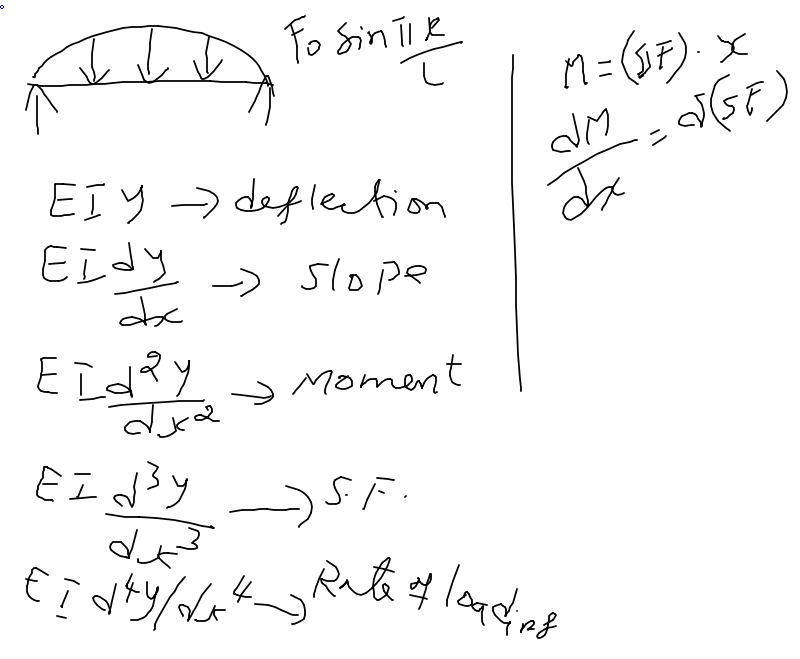 F0 sin πx/L
EIy → deflection
EI dy/dx → slope
EI d²y/dx² → Moment
EI d³y/dx³ → S.F.
EI d⁴y/dx⁴ → Rate of loading
M = (SF) · x
dM/dx = d(SF)